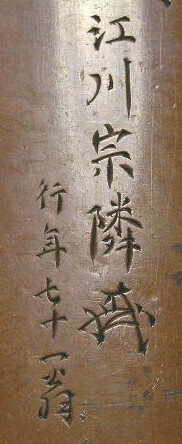 江川宗隣
行年七十一翁